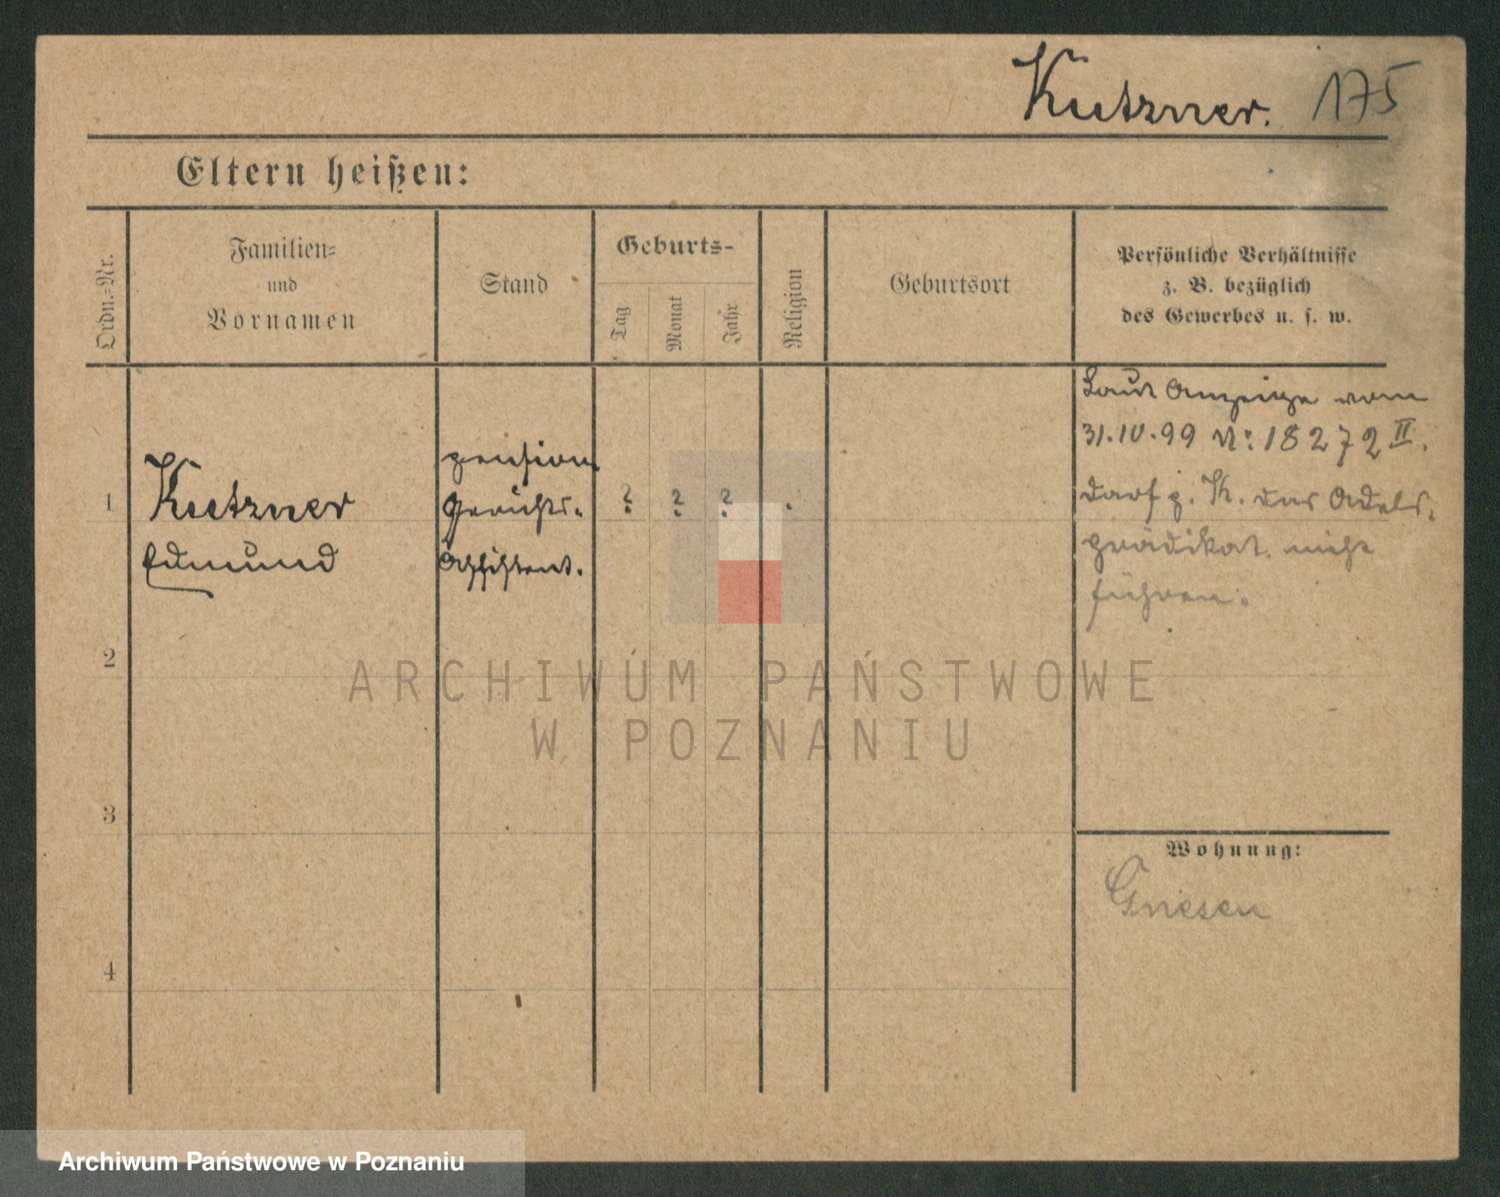 Kutzner. 175
Eltern heißen:
Ordn.-Nr.
Familien-
und
Vornamen
Stand
Geburts-
Tag
Monat
Jahr
Religion
Geburtsort
Persönliche Verhältnisse
z. B. bezüglich
des Gewerbes u. s. w.
1
Kutzner
Edmund
pension.
Gerichts-
Assistent.
? ? ? .
Laut Anzeige vom
31.10.99 N: 18272 II.
darf p. K. das Adels-
prädikat nicht
führen.
2
3
4
Wohnung:
Gnesen
ARCHIWUM PAŃSTWOWE
W POZNANIU
Archiwum Państwowe w Poznaniu